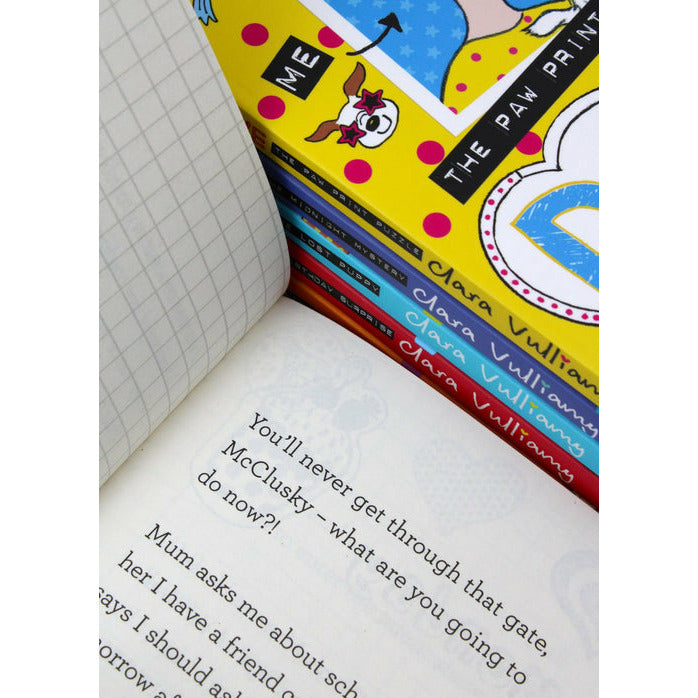 ME
THE PAW PRINT
D
THE PAW PRINT PUZZLE
MIDNIGHT MYSTERY
LOST PUPPY
Clara Vulliamy
Clara Vulliamy
Clara Vulliamy
Clara Vulliamy
You'll never get through that gate,
McClusky – what are you going to
do now?!
Mum asks me about sch
her I have a friend o
says I should ask
morrow af